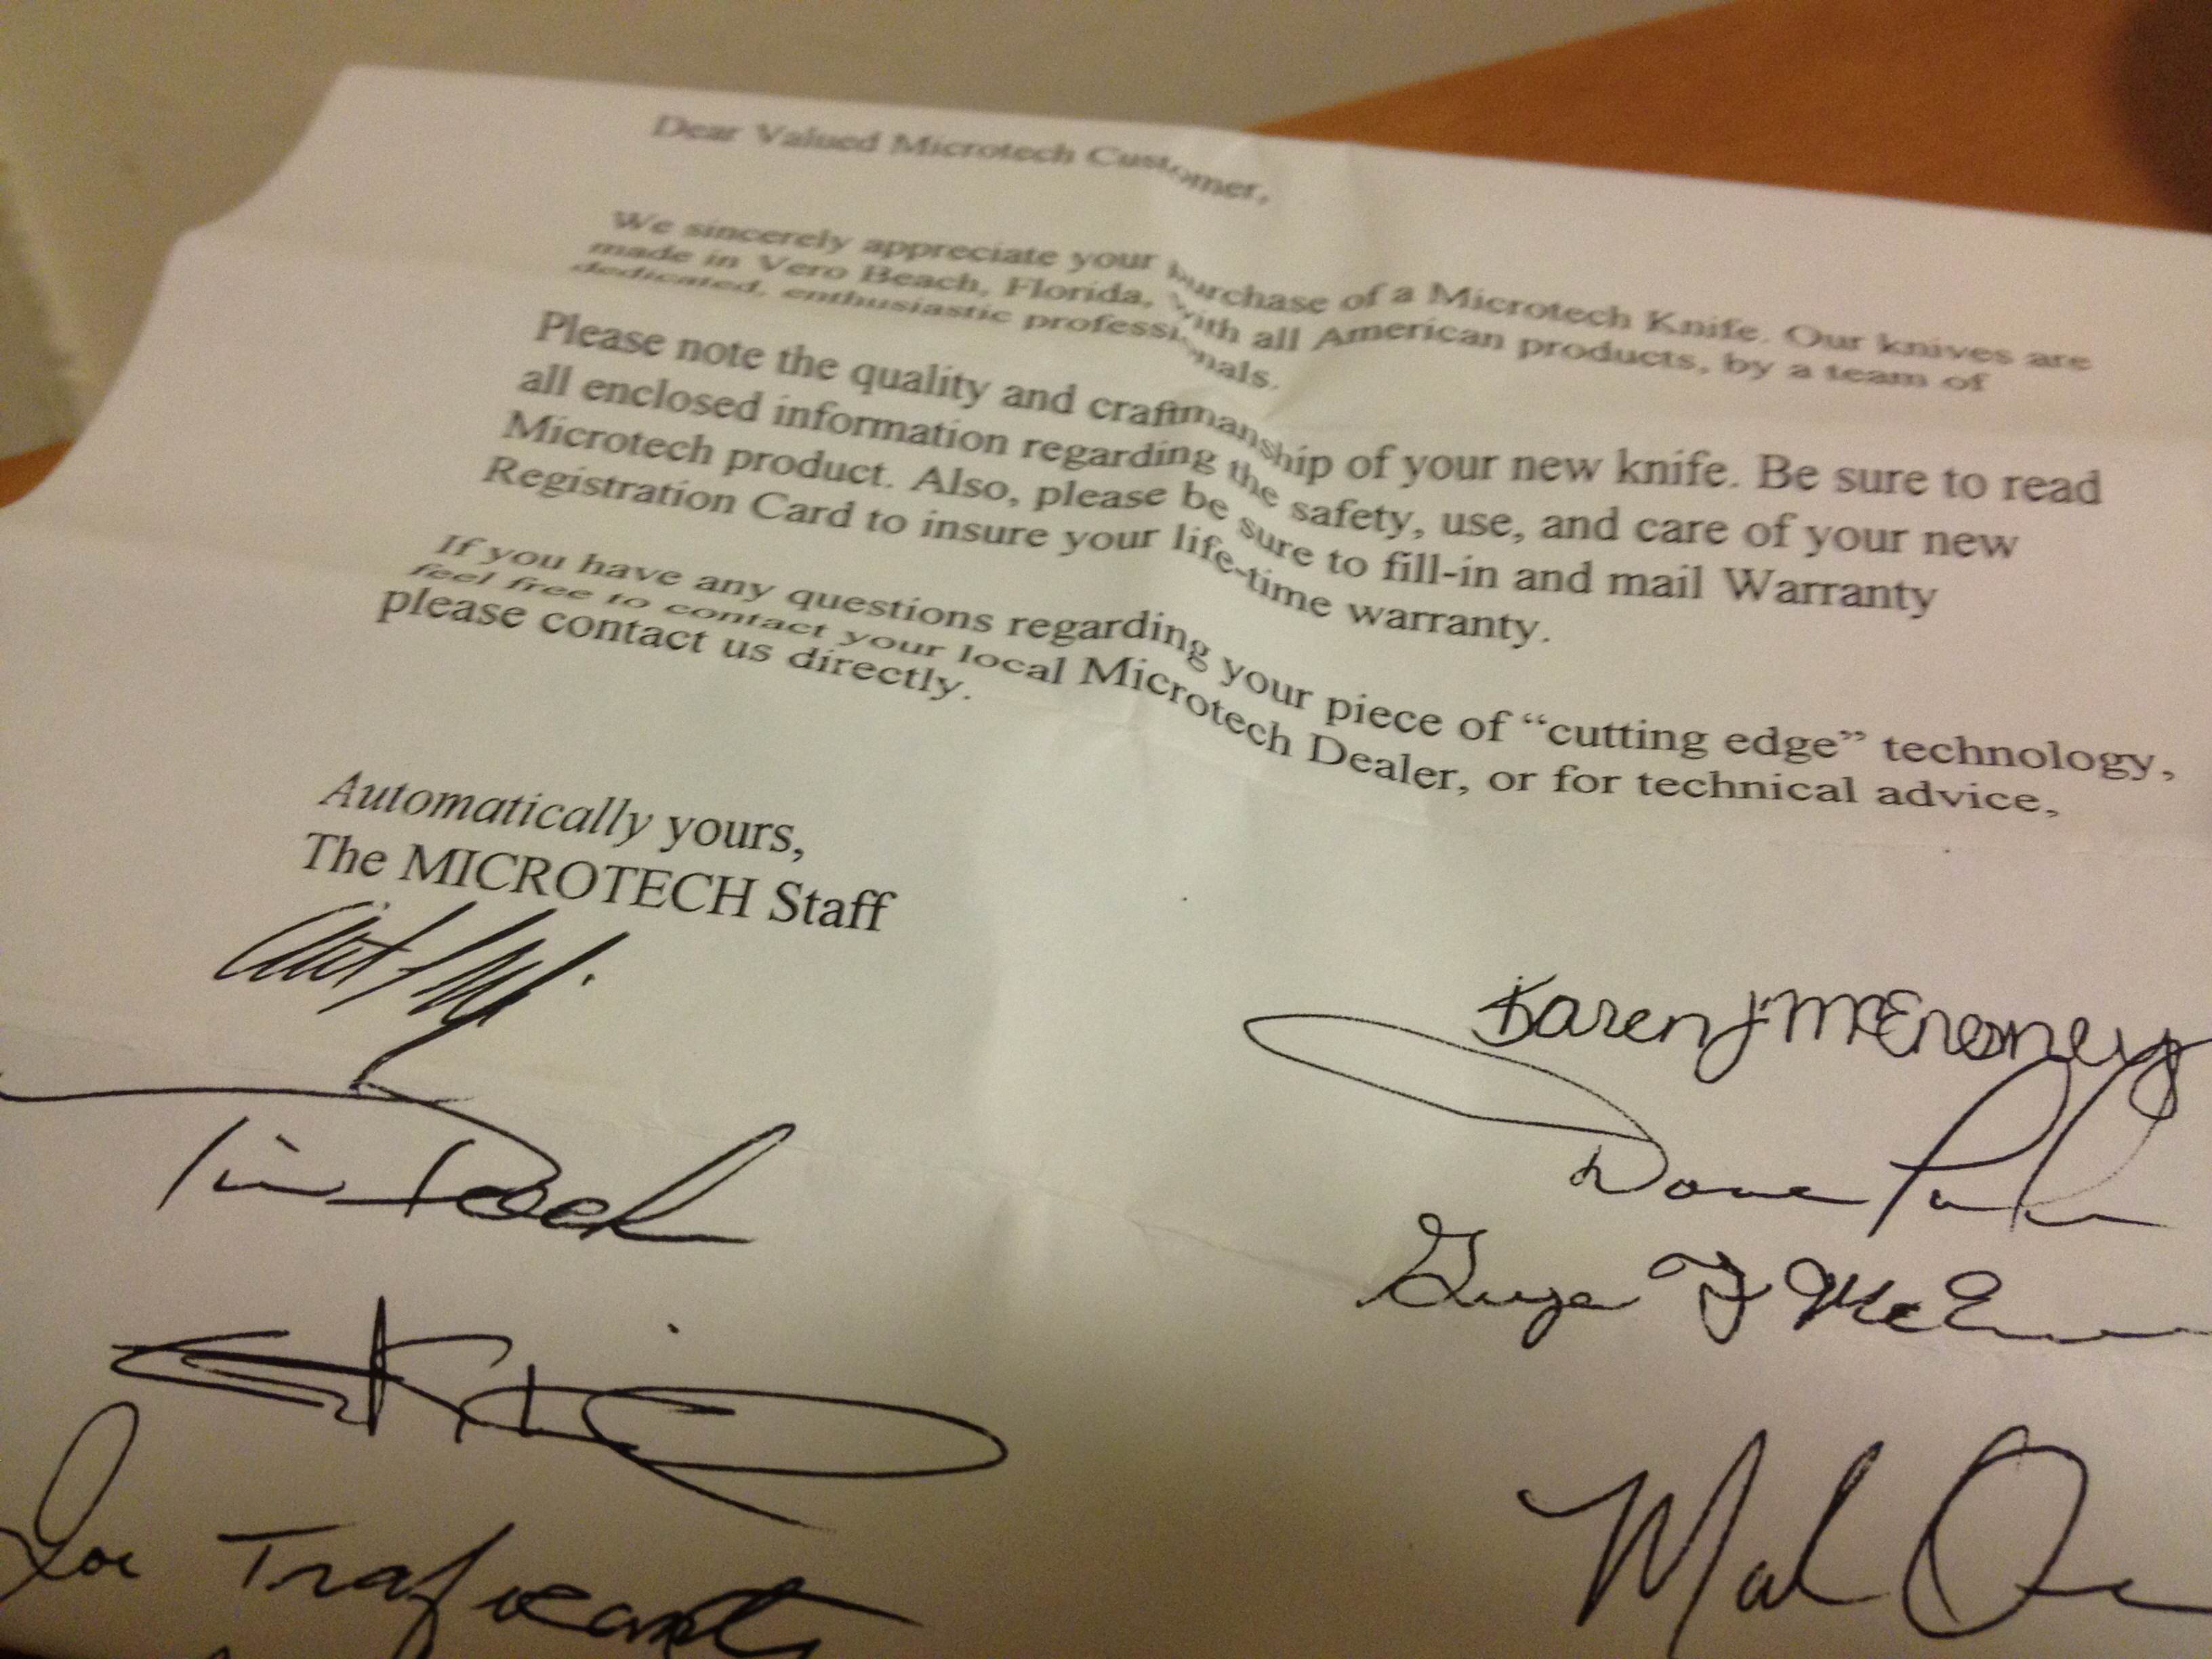 Dear Valued Microtech Customer,
We sincerely appreciate your purchase of a Microtech Knife. Our knives are
made in Vero Beach, Florida, with all American products, by a team of
dedicated, enthusiastic professionals.
Please note the quality and craftmanship of your new knife. Be sure to read
all enclosed information regarding the safety, use, and care of your new
Microtech product. Also, please be sure to fill-in and mail Warranty
Registration Card to insure your life-time warranty.
If you have any questions regarding your piece of “cutting edge” technology,
feel free to contact your local Microtech Dealer, or for technical advice,
please contact us directly.
Automatically yours,
The MICROTECH Staff
Karen J. McEnroney
Tim